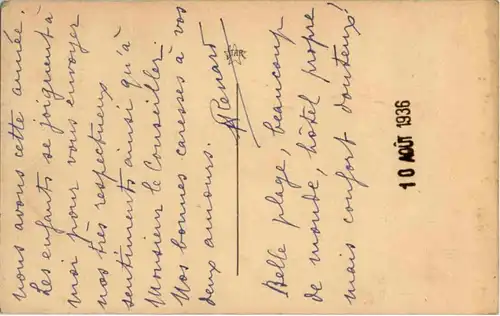 nous avons cette année.
Les enfants se joignent à
moi pour vous envoyer
nos très respectueux
sentiments ainsi qu'à
Monsieur le Conseiller.
Nos bonnes caresses à vos
deux amours.
Belle plage, beaucoup
de monde, hôtel propre
mais confort douteux!
10 AOÛT 1936